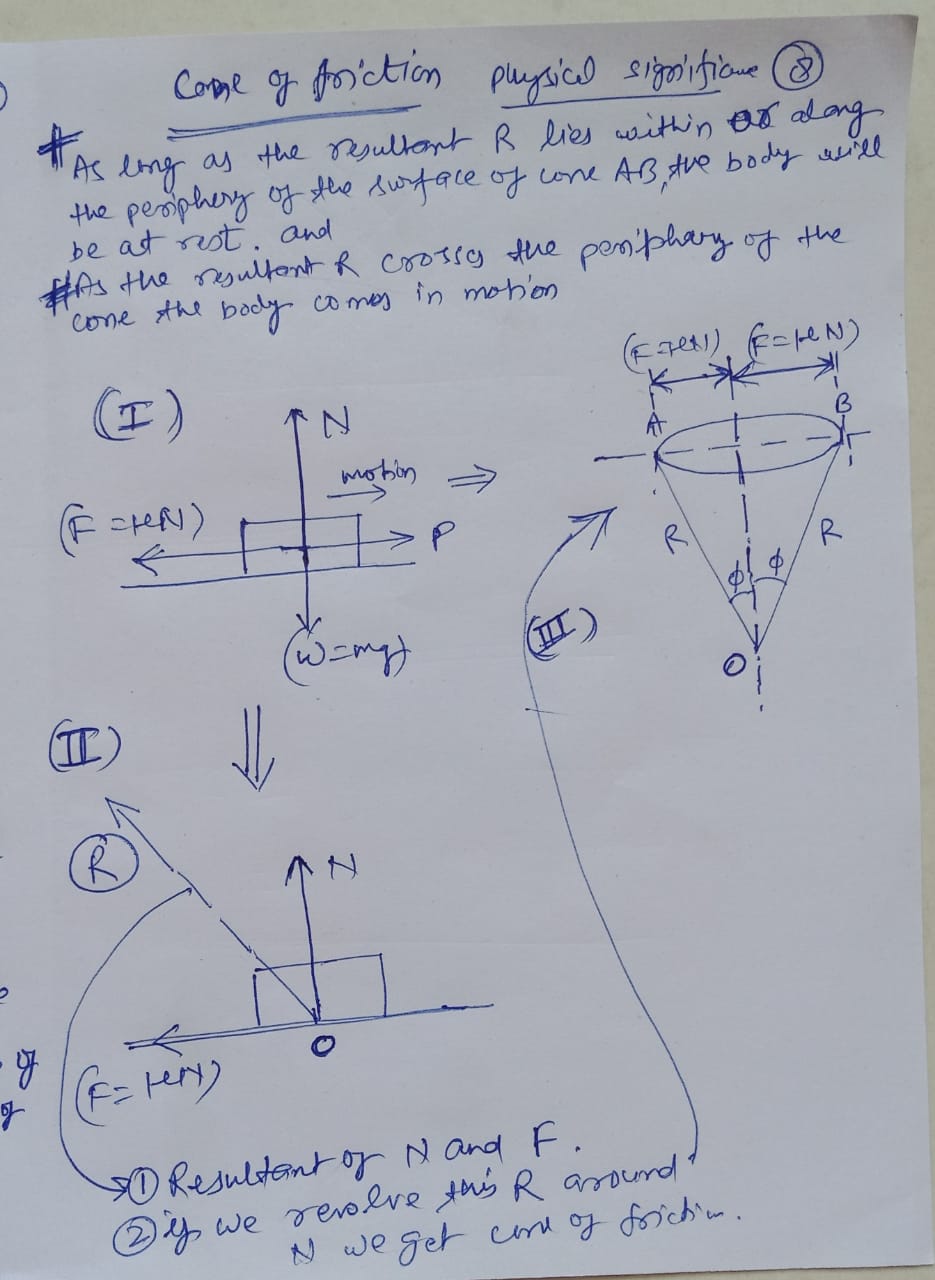 Cone of friction physical significance (8)
# As long as the resultant R lies within or along
the periphery of the surface of cone AB, the body will
be at rest. and
# As the resultant R crosses the periphary of the
cone the body comes in motion
(F=μN) (F=μN)
(I)
N
A
B
motion
⇒
(F=μN)
P
R
R
φ
φ
(III)
(W=mg)
O
(II)
R
N
O
(F=μN)
① Resultant of N and F.
② if we revolve this R around
N we get cone of friction.